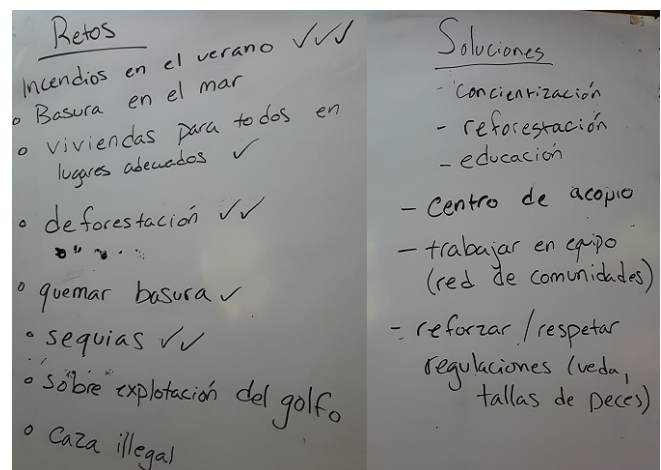 Retos
Incendios en el verano ✓✓✓
• Basura en el mar
• viviendas para todos en
lugares adecuados ✓
• deforestación ✓✓
• quemar basura ✓
• sequias ✓✓
• sobre explotación del golfo
• caza illegal
Soluciones
- concientización
- reforestación
- educación
- centro de acopio
- trabajar en equipo
(red de comunidades)
- reforzar / respetar
regulaciones (veda,
tallas de peces)